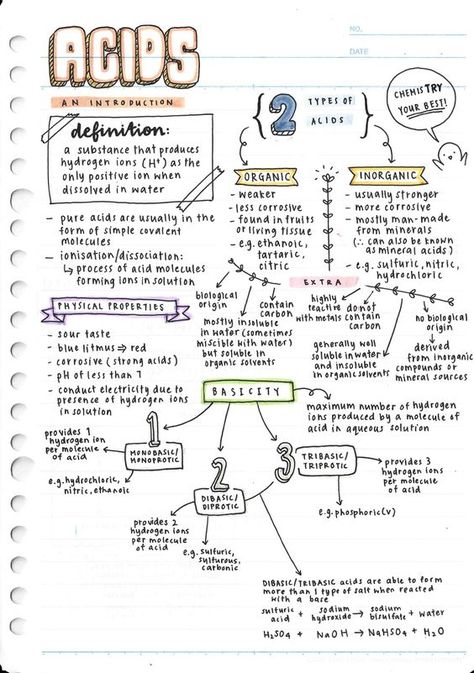 ACIDS
NO.
DATE
AN INTRODUCTION
definition:
a substance that produces
hydrogen ions (H⁺) as the
only positive ion when
dissolved in water
- pure acids are usually in the
form of simple covalent
molecules
- ionisation/dissociation:
↳ process of acid molecules
forming ions in solution
PHYSICAL PROPERTIES
- sour taste
- blue litmus ⇒ red
- corrosive (strong acids)
- pH of less than 7
- conduct electricity due to
presence of hydrogen ions
in solution
2 TYPES OF
ACIDS
CHEMISTRY
YOUR BEST!
ORGANIC
- weaker
- less corrosive
- found in fruits
or living tissue
- e.g. ethanoic,
tartaric,
citric
INORGANIC
- usually stronger
- more corrosive
- mostly man-made
from minerals
(∴ can also be known
as mineral acids)
- e.g. sulfuric, nitric,
hydrochloric
EXTRA
biological
origin
mostly insoluble
in water (sometimes
miscible with water)
but soluble in
organic solvents
contain
carbon
highly
reactive
with metals
do not
contain
carbon
generally well
soluble in water
and insoluble
in organic solvents
no biological
origin
derived
from inorganic
compounds or
mineral sources
BASICITY
maximum number of hydrogen
ions produced by a molecule of
acid in aqueous solution
1
MONOBASIC/
MONOPROTIC
provides 1
hydrogen ion
per molecule
of acid
e.g. hydrochloric,
nitric, ethanoic
2
DIBASIC/
DIPROTIC
provides 2
hydrogen ions
per molecule
of acid
e.g. sulfuric,
sulfurous,
carbonic
3
TRIBASIC/
TRIPROTIC
provides 3
hydrogen ions
per molecule
of acid
e.g. phosphoric(v)
DIBASIC/TRIBASIC acids are able to form
more than 1 type of salt when reacted
with a base
sulfuric acid + sodium hydroxide → sodium bisulfate + water
H₂SO₄ + NaOH → NaHSO₄ + H₂O